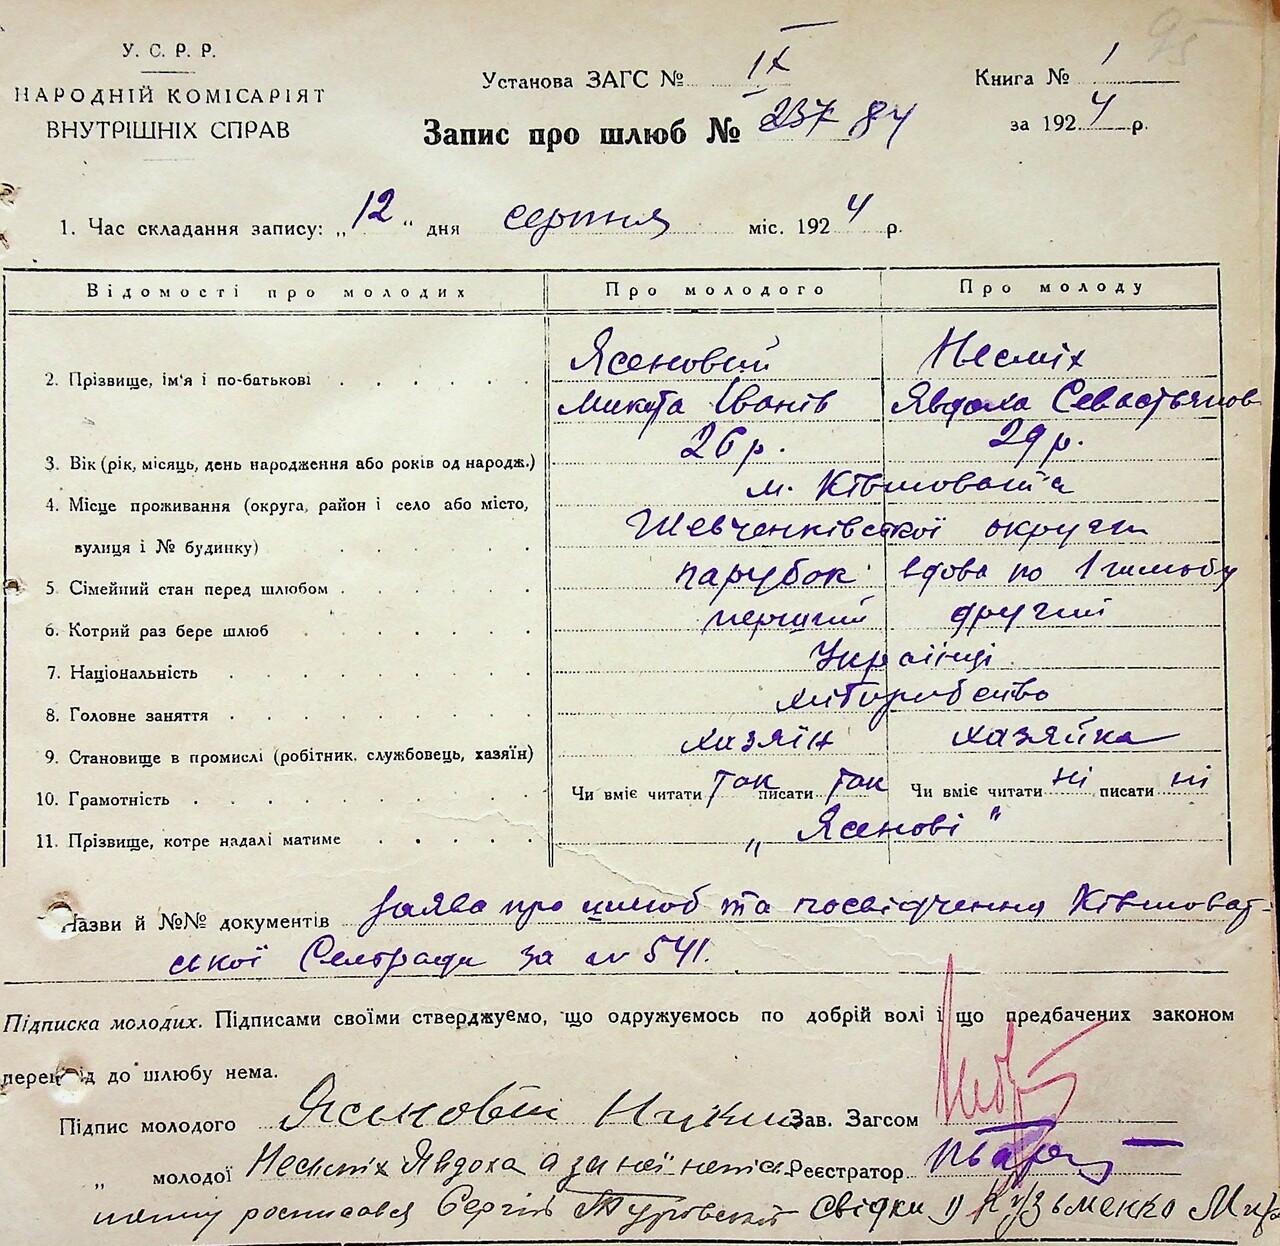 У. С. Р. Р.
НАРОДНІЙ КОМІСАРІЯТ
ВНУТРІШНІХ СПРАВ
Установа ЗАГС № IX
Книга № 1
95
Запис про шлюб № 237 84
за 1924 р.
1. Час складання запису: „12“ дня серпня міс. 1924 р.
Відомості про молодих Про молодого Про молоду
2. Прізвище, ім'я і по-батькові Ясеновий Несміх
Микита Іванів Явдоха Севастьянов
3. Вік (рік, місяць, день народження або років од народж.) 26 р. 29 р.
4. Місце проживання (округа, район і село або місто, м. Ківшовата
вулиця і № будинку) Шевченківської округи
5. Сімейний стан перед шлюбом парубок вдова по 1 шлюбу
6. Котрий раз бере шлюб перший другий
7. Національність Українці
8. Головне заняття хліборобство
9. Становище в промислі (робітник, службовець, хазяїн) хазяїн хазяйка
10. Грамотність Чи вміє читати так писати так Чи вміє читати ні писати ні
11. Прізвище, котре надалі матиме „Ясенові"
Назви й №№ документів Заява про шлюб та посвідчення Ківшоват-
ської Сельради за № 541.
Підписка молодих. Підписами своїми стверджуємо, що одружуємось по добрій волі і що предбачених законом
перешкод до шлюбу нема.
Підпис молодого Ясеновий Зав. Загсом
„ молодої Несміх Явдоха а за неї непис Реєстратор
менну росписався Сергій Туровський Свідки 1) Кузьменко